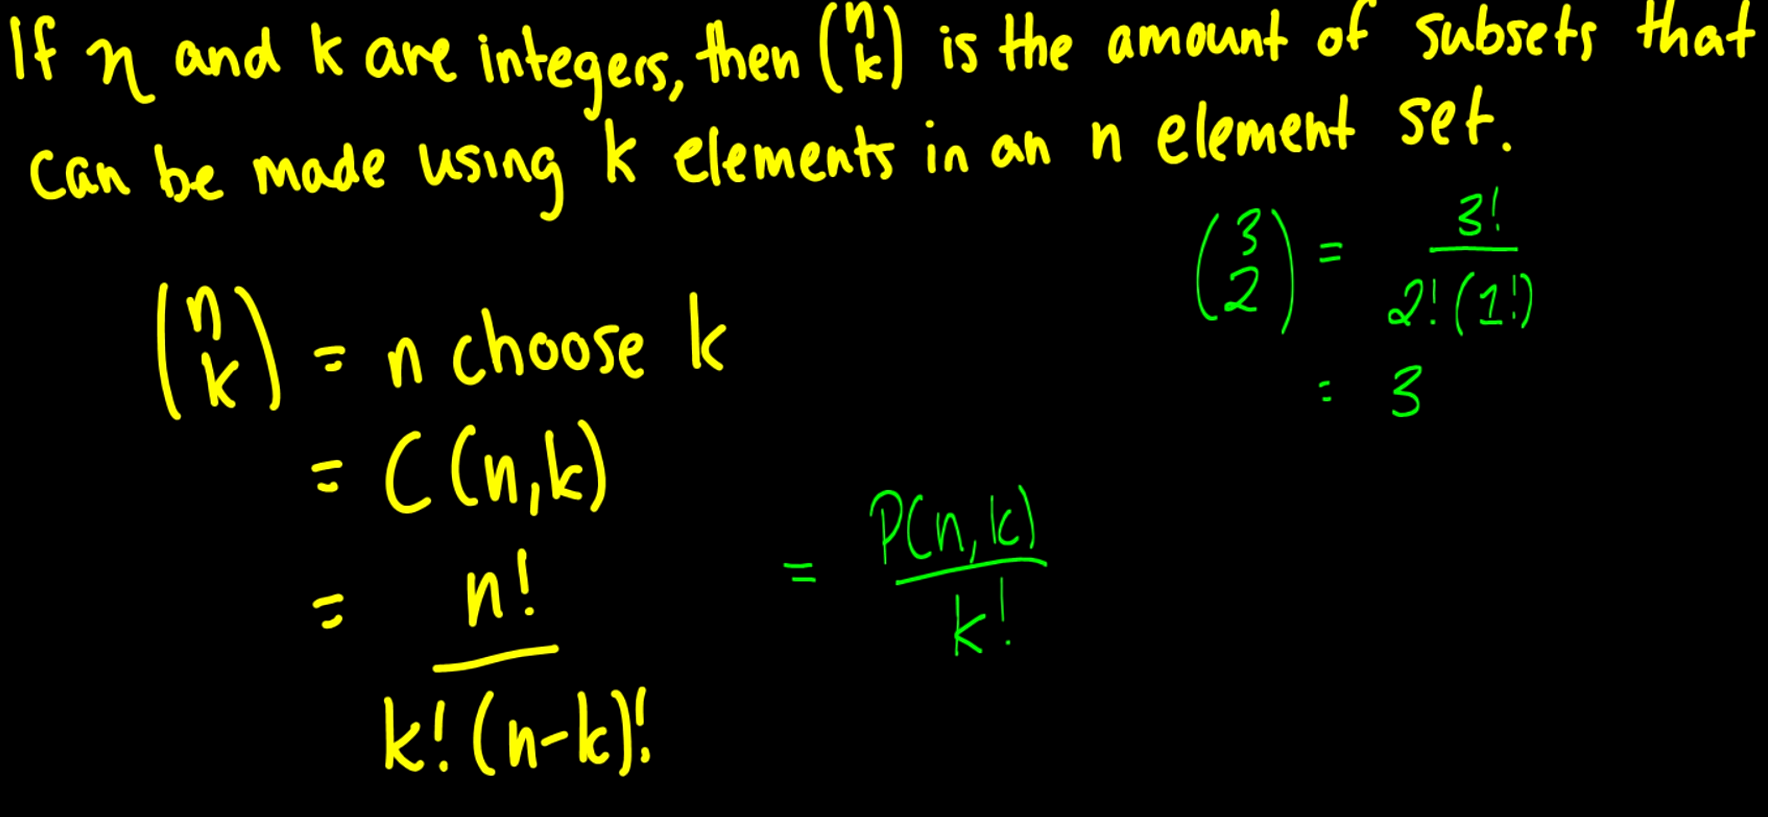 If n and k are integers, then (n k) is the amount of subsets that
can be made using k elements in an n element set.
(3 2) = 3! / 2!(1!)
= 3
(n k) = n choose k
= C(n,k)
= n! / k!(n-k)! = P(n,k) / k!